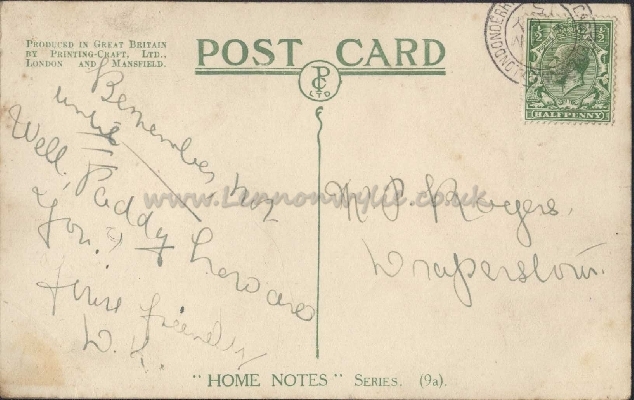 PRODUCED IN GREAT BRITAIN
BY PRINTING-CRAFT, LTD.,
LONDON AND MANSFIELD.
POST CARD
PC
LTD
HALFPENNY
Remember
until
Well, Paddy how are
You?
W. P. Rogers,
Draperstown.
www.Lennonwylie.co.uk
"HOME NOTES" SERIES. (9a).